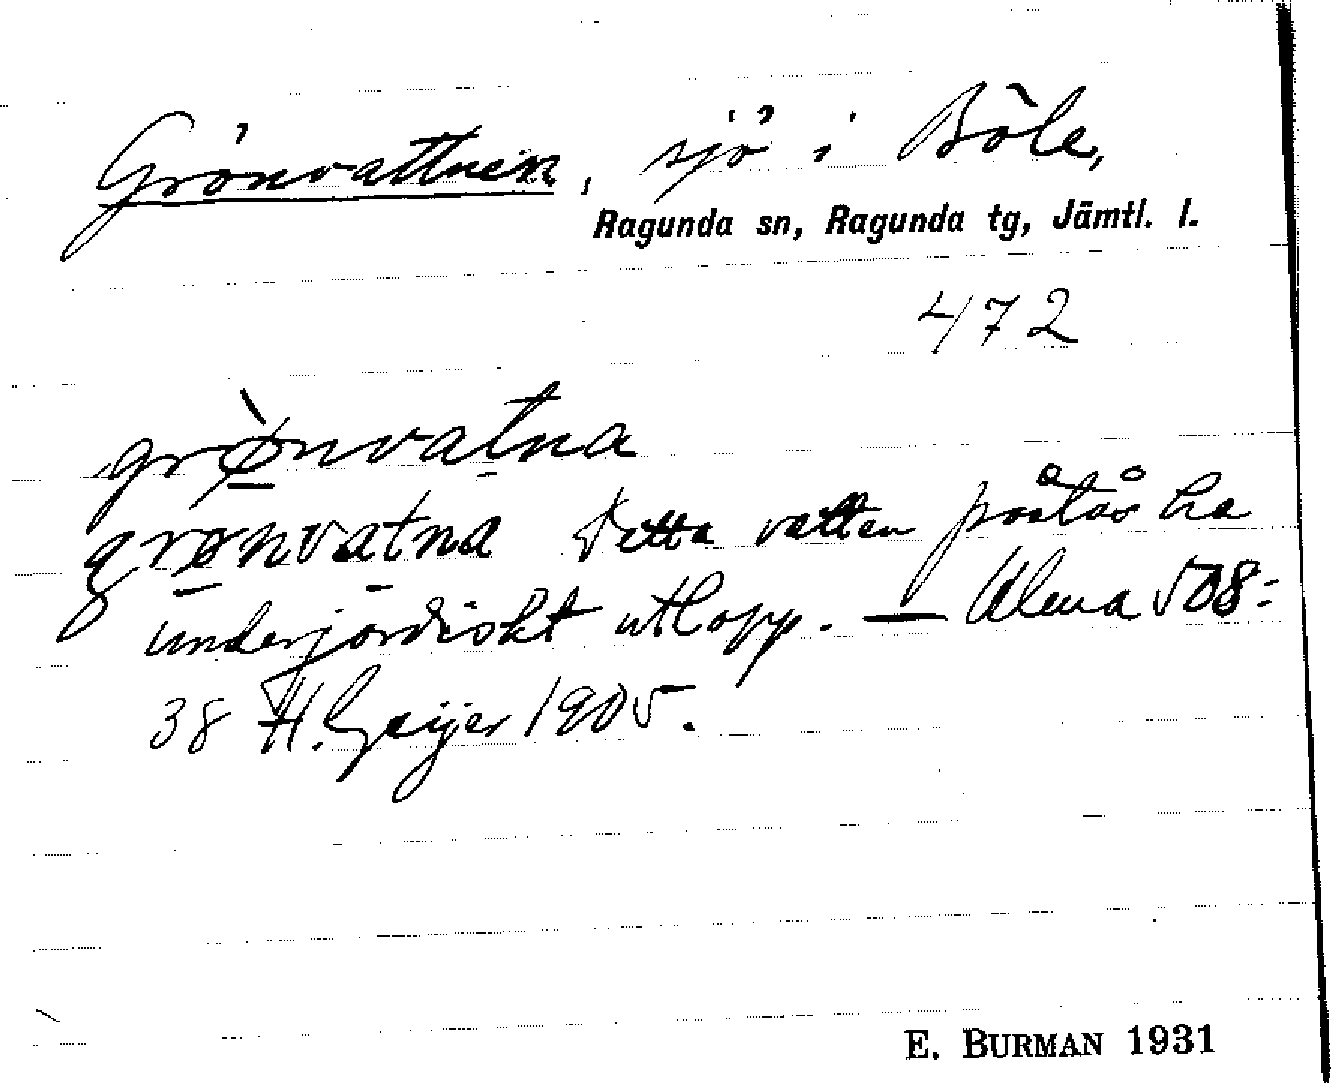 Grönvattnen, sjö i Böle,
Ragunda sn, Ragunda tg, Jämtl. l.
472
grø̀nvatna
grønvatna Detta vatten påstås ha
underjordiskt utlopp. — Ulma 508:
38 H. Geijer 1905.
E. BURMAN 1931